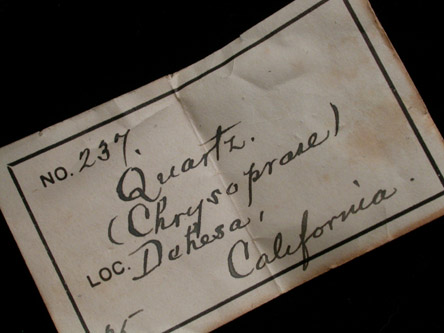 NO. 237.
Quartz.
(Chrysoprase)
LOC. Dehesa,
California.